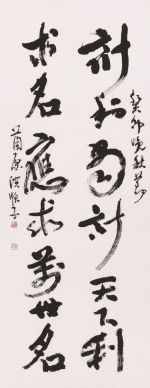 癸卯晚秋節
計利當計天下利
求名應求萬世名